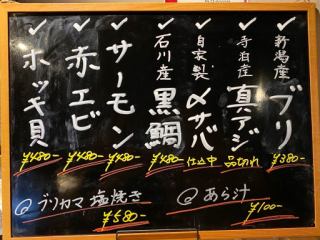 ✓新潟産 ブリ ¥380-
✓寺泊産 真アジ 品切れ
✓自家製 〆サバ 仕込中
✓石川産 黒鯛 ¥480-
✓サーモン ¥480-
✓赤エビ ¥480-
✓ホッキ貝 ¥480-
ブリカマ塩焼き ¥580-
あら汁 ¥100-